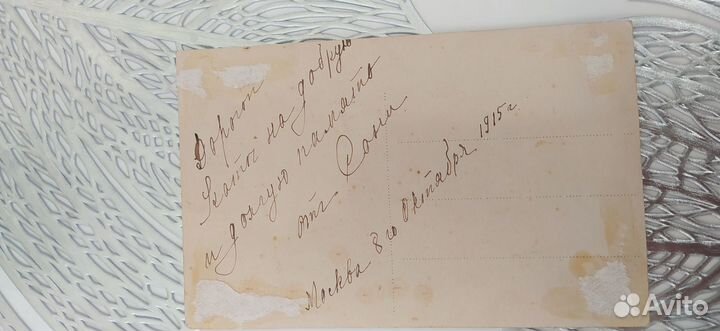 Дорогой
Кате на добрую
и долгую память
отъ Сони
Москва 8го Октября 1915 г.
Avito